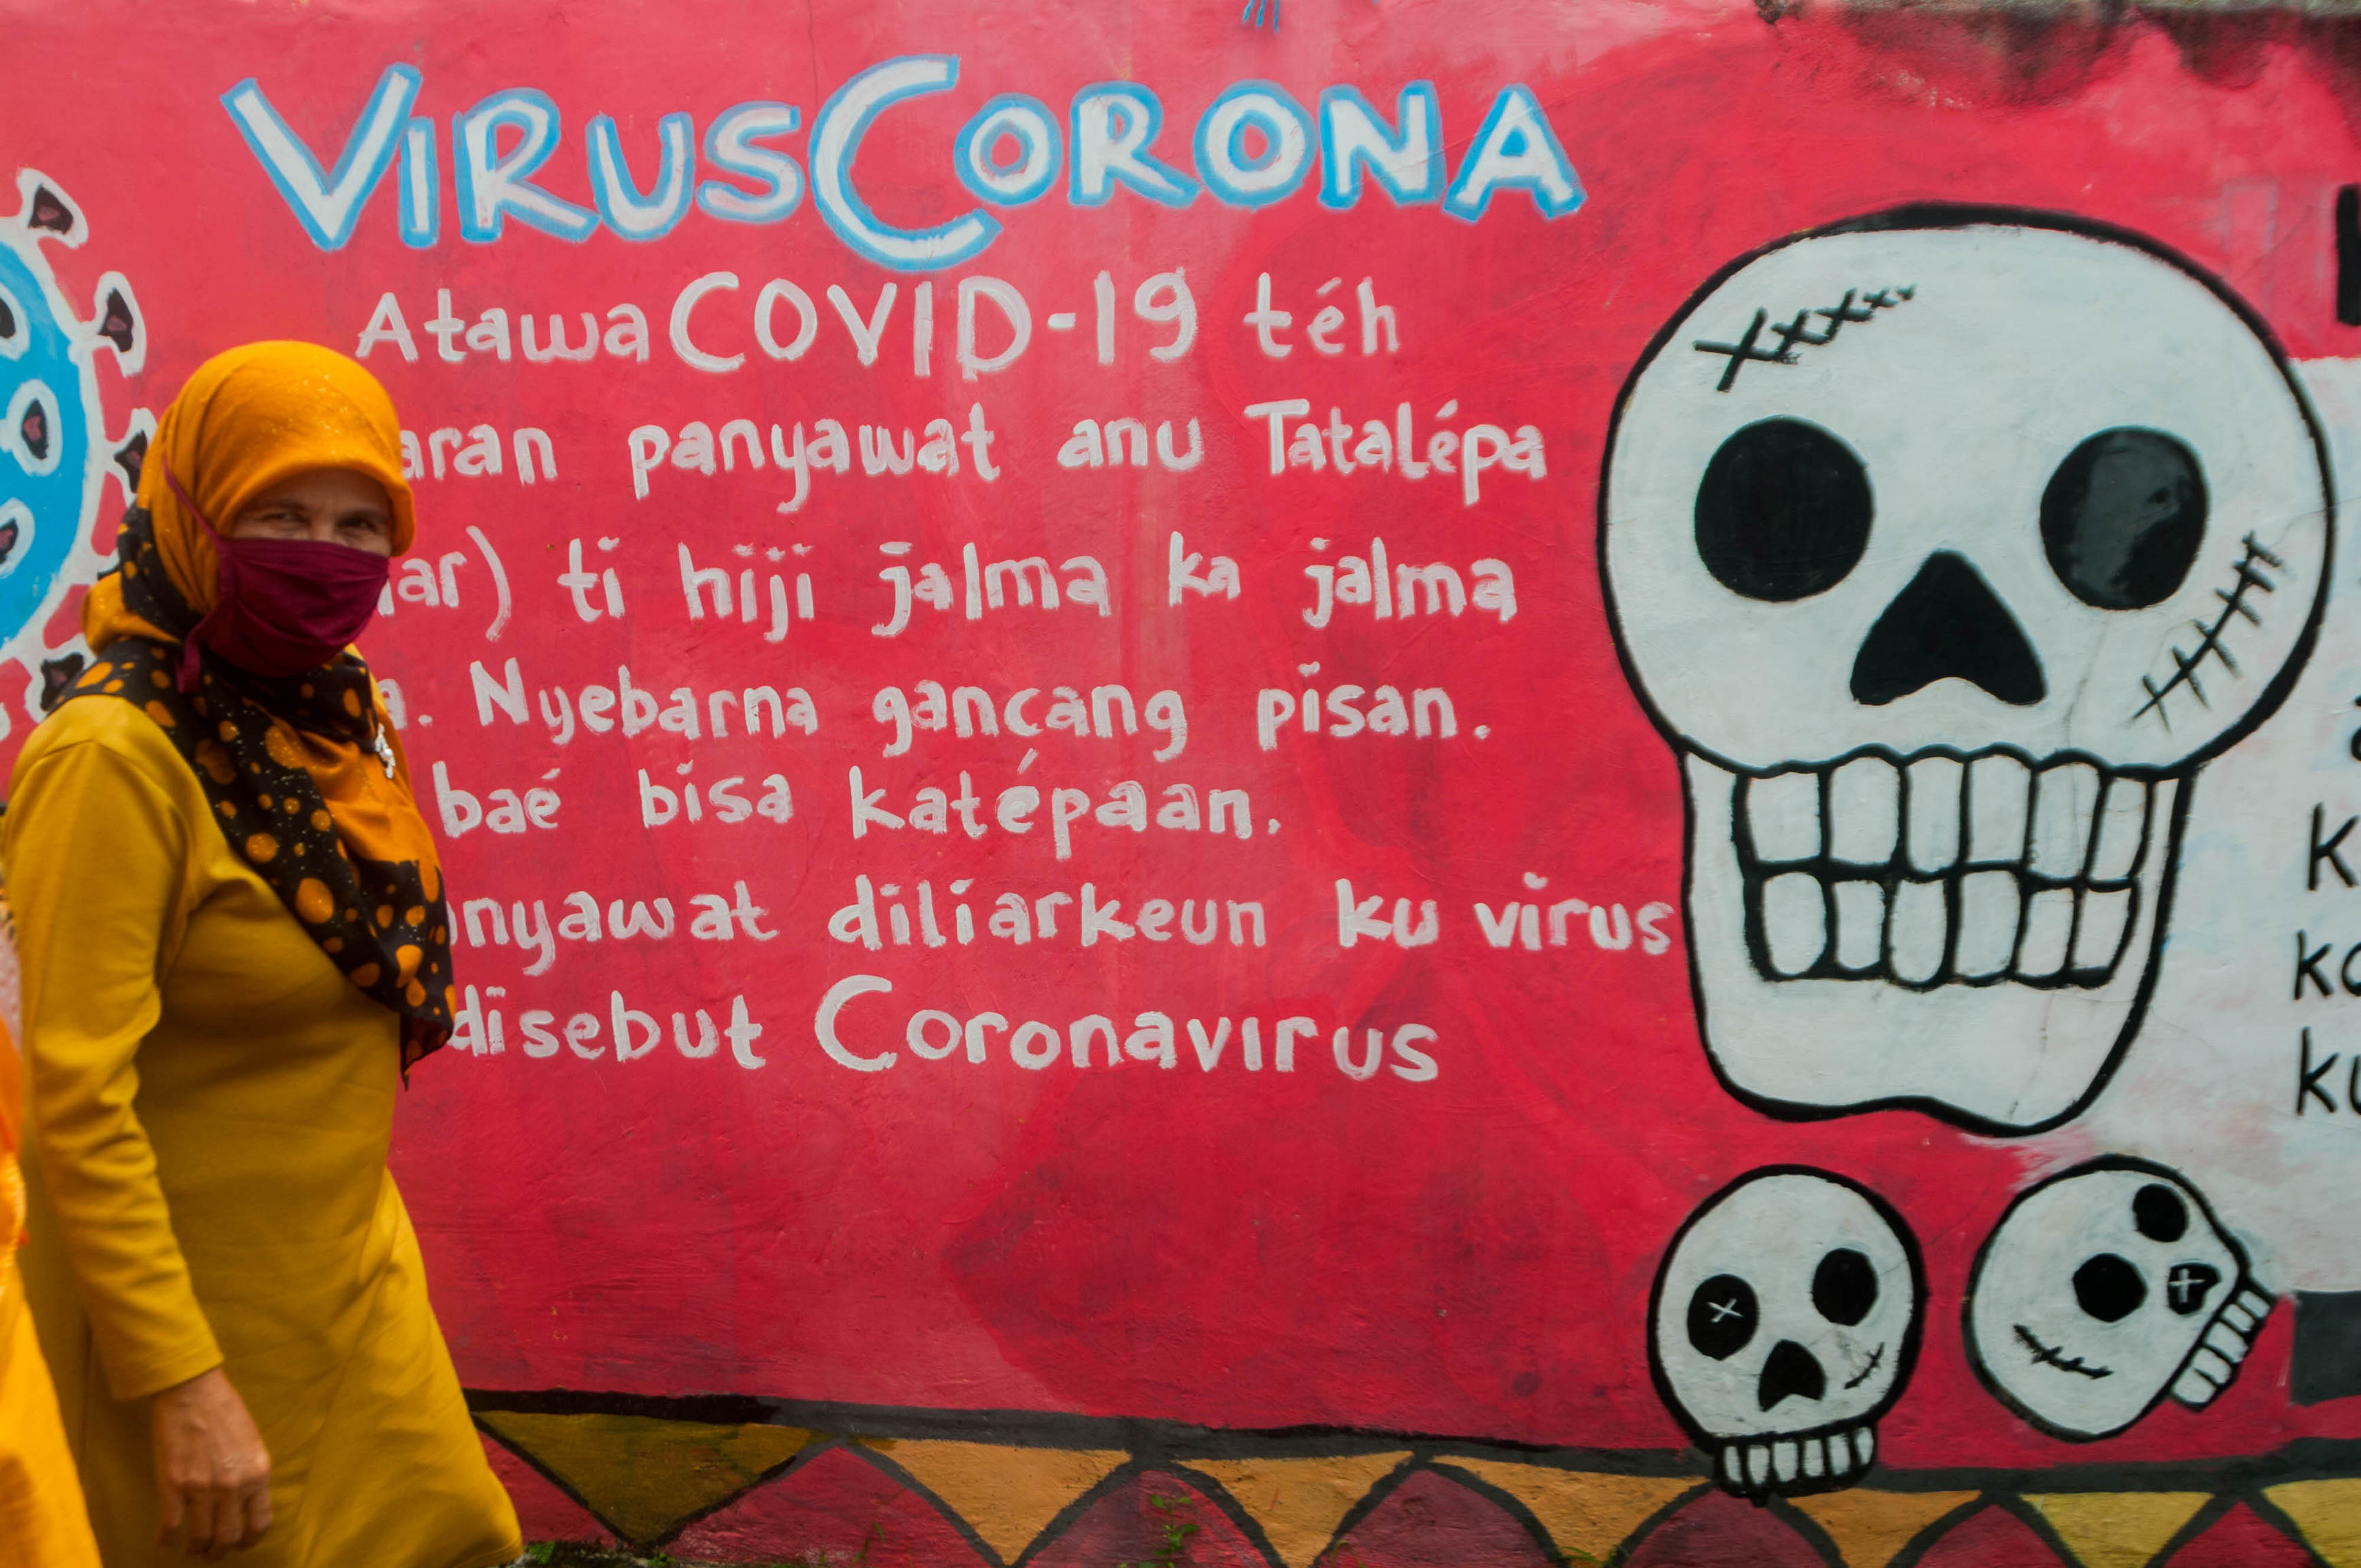 VIRUSCORONA
Atawa COVID-19 téh
aran panyawat anu Tatalépa
ar) ti hiji jalma ka jalma
a. Nyebarna gancang pisan.
baé bisa katépaan.
nyawat diliarkeun ku virus
disebut Coronavirus